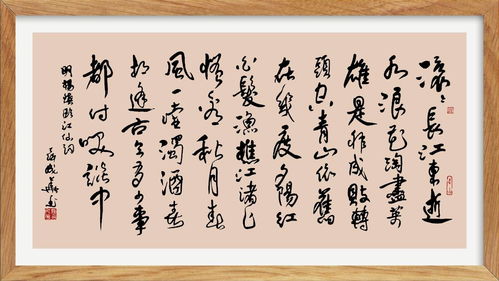 滚々長江東逝
水浪花淘盡英
雄是非成敗轉
頭空青山依舊
在幾度夕陽紅
白髮漁樵江渚上
慣看秋月春
風一壺濁酒喜
相逢古今多少事
都付笑談中
明楊慎临江仙詞